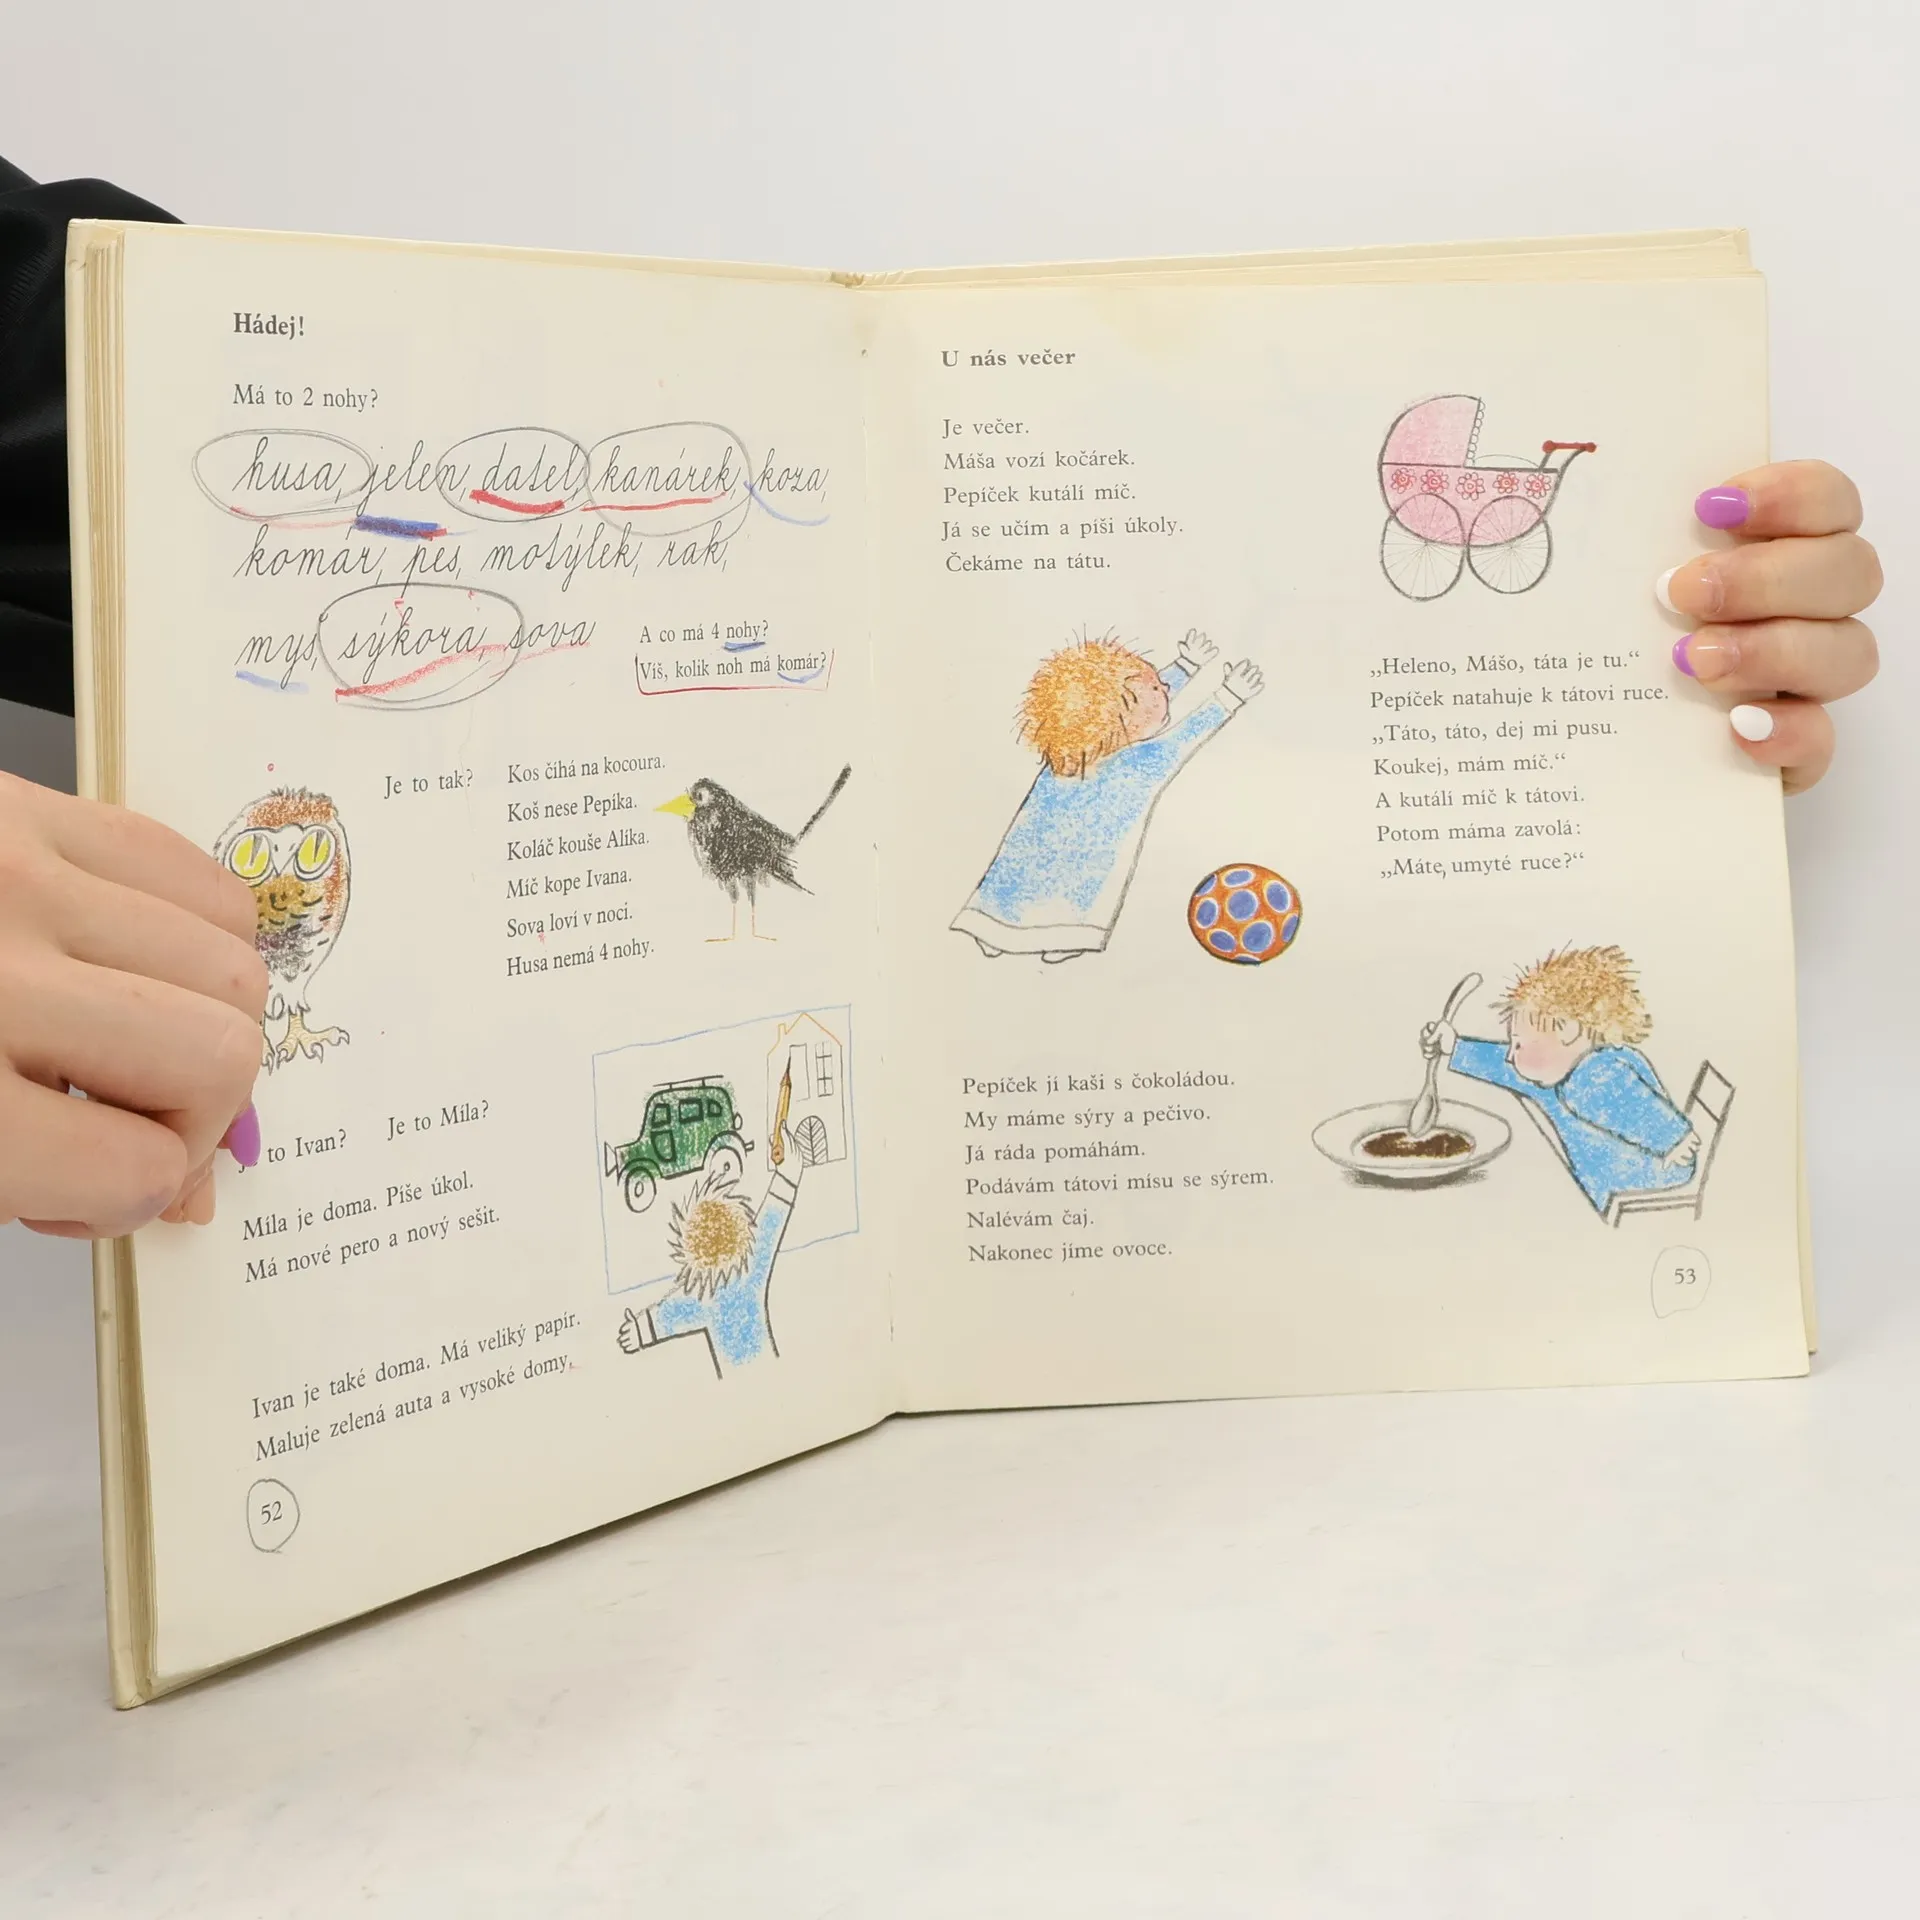 Hádej!
Má to 2 nohy?
husa, jelen, datel, kanárek, koza,
komár, pes, motýlek, rak,
myš, sýkora, sova
A co má 4 nohy?
Víš, kolik noh má komár?
Je to tak?
Kos číhá na kocoura.
Koš nese Pepíka.
Koláč kouše Alíka.
Míč kope Ivana.
Sova loví v noci.
Husa nemá 4 nohy.
to Ivan? Je to Míla?
Míla je doma. Píše úkol.
Má nové pero a nový sešit.
Ivan je také doma. Má veliký papír.
Maluje zelená auta a vysoké domy.
52
U nás večer
Je večer.
Máša vozí kočárek.
Pepíček kutálí míč.
Já se učím a píši úkoly.
Čekáme na tátu.
„Heleno, Mášo, táta je tu.“
Pepíček natahuje k tátovi ruce.
„Táto, táto, dej mi pusu.
Koukej, mám míč.“
A kutálí míč k tátovi.
Potom máma zavolá:
„Máte umyté ruce?“
Pepíček jí kaši s čokoládou.
My máme sýry a pečivo.
Já ráda pomáhám.
Podávám tátovi mísu se sýrem.
Nalévám čaj.
Nakonec jíme ovoce.
53